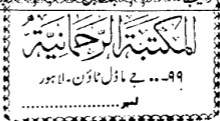 المکتبۃ الرحمانیۃ
۹۹۔۔۔جے ماڈل ٹاؤن۔لاہور
نمبر..................